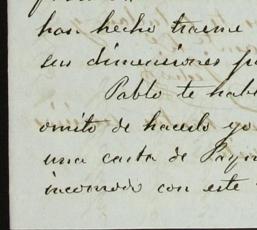 han hecho traerme
sus dimensiones
Pablo te habl
omito de hacerlo yo
una carta de
incomodo con este